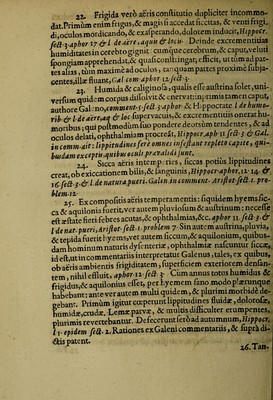 22. Frigida verò aëris constitutio dupliciter incommo-
dat. Primùm enim frigus, & magis si accedat siccitas, & venti frigi
di, oculos mordicando, & exasperando, dolorem inducit, Hippocr.
sect 3 aphor 17 & l de aëre. aquis & locis Deinde excrementitias
humiditates in cerebro gignit: cumque cerebrum, & caput, veluti
spongiam apprehendat, & quasi constringat, efficit, ut tùm ad par-
tes alias, tùm maximè ad oculos, tanquam partes proximè subja-
centes, illæ fluant, Gal com aphor 12. sect 3
23. Humida & caliginosa, qualis esse austrina solet, uni-
versum quidem corpus dissolvit & enervat: in primis tamen caput,
authore Gal: 
rib & l de aëre, aq & loc supervacuis, & excrementitiis onerat hu-
moribus; qui postmodùm suo pondere deorsùm tendentes, & ad
oculos delati, ophthalmiam procreāt. Hippocr. aph 11 sect 3 & Gal.
in com. ait: lippitudines ferè omnes infestant repleto capite, qui-
busdam exceptu, quibus oculi prævalidi sunt.
24. Sicca aëris intemperies, siccas potiùs lippitudines
creat, ob exiccationem bilis, & sanguinis, Hippocr. aphor. 12. 14 &
16 sect 3 & l de natura pueri. Galen in comment. Aristot. sect 1. pro-
blem. 12
25. Ex compositis aëris temperamentis: siquidem hyems sic-
ca & aquilonia fuerit, ver autem pluviosum & austrinum: necesse
est æstate fieri febres acutas, & ophthalmias, &c. aphor 11. sect 3 &
l de nat. pueri, Aristot. sect 1. problem 7. Sin autem austrina, pluvia,
& tepida fuerit hyems, ver autem siccum, & aquilonium, quibus-
dam hominum naturis dysenteriæ, ophthalmiæ nascuntur siccæ,
id est, ut in commentariis interpretatur Galenus, tales, ex quibus,
ob aëris ambientis frigiditatem, superficiem exteriorem densan-
tem, nihil effluit, aphor 12. sect 3 Cum annus totus humidus &
frigidus, & aquilonius esset, per hyemem sano modo plærunque
habebant: ante ver autem multi quidem, & plurimi morbidè de-
gebant. Primùm igitur cœperunt lippitudines fluidæ, dolorosæ,
humidæ, crudæ. Lemæ parvæ, & multis difficulter erumpentes,
plurimis revertebantur. Defecerunt serò ad autumnum, Hippocr,
l 1. epidem sect. 2. Rationes ex Galeni commentariis, & supra di-
ctis patent.
26. Tan.